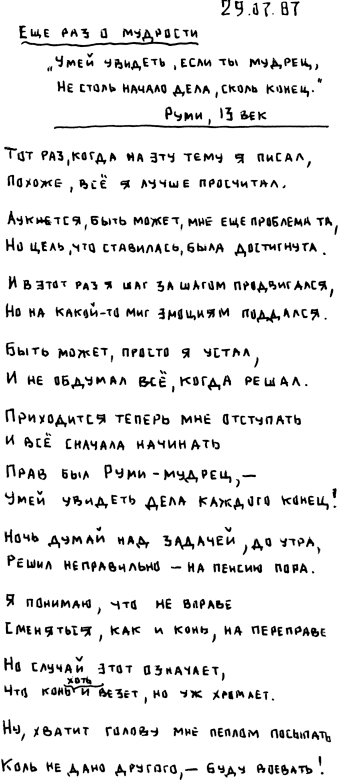 29.07.87
Еще раз о мудрости
„Умей увидеть, если ты мудрец,
Не столь начало дела, сколь конец."
Руми, 13 век
Тот раз, когда на эту тему я писал,
Похоже, всё я лучше просчитал.
Аукнется, быть может, мне еще проблема та,
Но цель, что ставилась, была достигнута.
И в этот раз я шаг за шагом продвигался,
Но на какой-то миг эмоциям поддался.
Быть может, просто я устал,
И не обдумал всё, когда решал.
Приходится теперь мне отступать
И всё сначала начинать
Прав был Руми - мудрец, —
Умей увидеть дела каждого конец!
Ночь думай над задачей, до утра,
Решил неправильно — на пенсию пора.
Я понимаю, что не вправе
Сменяться, как и конь, на переправе
Но случай этот означает,
Что конь хоть и везет, но уж хромает.
Ну, хватит голову мне пеплом посыпать
Коль не дано другого, — буду воевать!